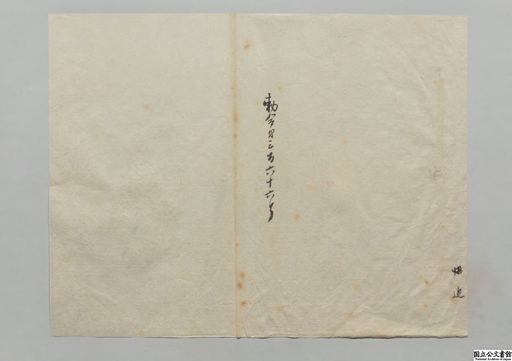 勅令第三百六十六号
国立公文書館
National Archives of Japan